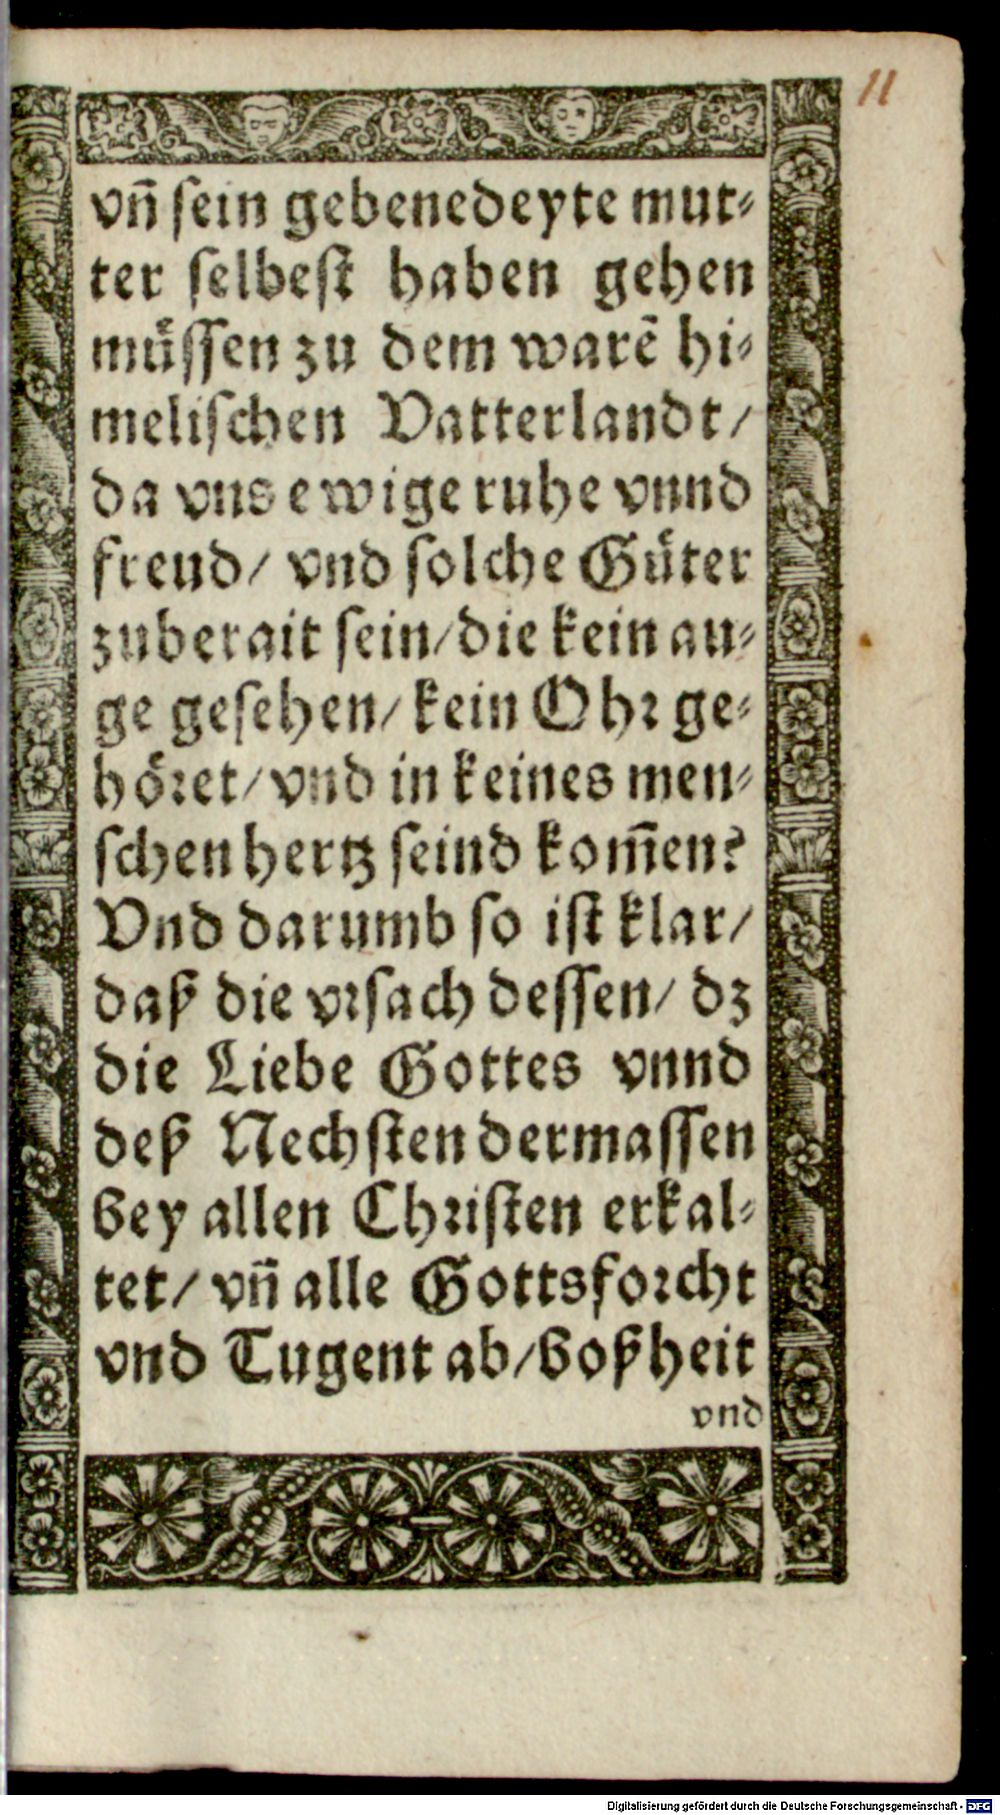 11
vn̄ sein gebenedeyte mut⸗
ter selbest haben gehen
müssen zu dem warē hi⸗
melischen Vatterlandt/
da vns ewige ruhe vnnd
freud/ vnd solche Güter
zuberait sein/die kein au⸗
ge gesehen/ kein Ohr ge⸗
höret/ vnd in keines men⸗
schen hertz seind kom̄en?
Vnd darumb so ist klar/
daß die vrsach dessen/ dz
die Liebe Gottes vnnd
deß Nechsten dermassen
bey allen Christen erkal⸗
tet/ vn̄ alle Gottsforcht
vnd Tugent ab/boßheit
vnd
Digitalisierung gefördert durch die Deutsche Forschungsgemeinschaft - DFG